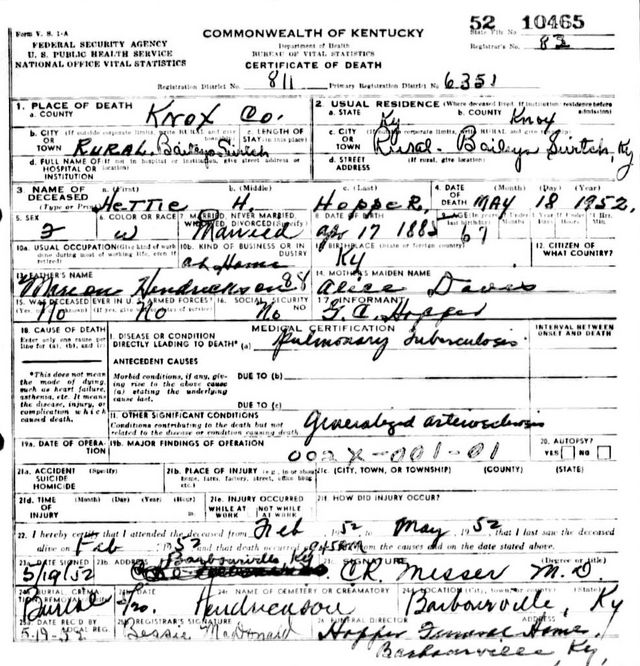 Form V. S. 1-A
FEDERAL SECURITY AGENCY
U. S. PUBLIC HEALTH SERVICE
NATIONAL OFFICE VITAL STATISTICS
COMMONWEALTH OF KENTUCKY
Department of Health
BUREAU OF VITAL STATISTICS
CERTIFICATE OF DEATH
52 10465
State File No.
Registrar's No. 83
Registration District No. 811 Primary Registration District No. 6351
1. PLACE OF DEATH
a. COUNTY Knox Co.
2. USUAL RESIDENCE (Where deceased lived. If institution: residence before admission)
a. STATE Ky b. COUNTY Knox
b. CITY OR TOWN (If outside corporate limits, write RURAL and give RURAL Baileys Swtch
c. LENGTH OF STAY
c. CITY OR TOWN Rural - Baileys Swtch, Ky
d. FULL NAME OF HOSPITAL OR INSTITUTION (If not in hospital or institution, give street address or location)
d. STREET ADDRESS (If rural, give location)
3. NAME OF DECEASED (Type or Print) a. (First) Hettie b. (Middle) H. c. (Last) Hopper,
4. DATE OF DEATH (Month) (Day) (Year) MAY 18 1952.
5. SEX F
6. COLOR OR RACE W
7. MARRIED, NEVER MARRIED, WIDOWED, DIVORCED (Specify) Married
8. DATE OF BIRTH Apr 17 1885
9. AGE 67
10a. USUAL OCCUPATION (Give kind of work done during most of working life, even if retired)
10b. KIND OF BUSINESS OR INDUSTRY at Home
11. BIRTHPLACE (State or foreign country) Ky
12. CITIZEN OF WHAT COUNTRY?
13. FATHER'S NAME Marion Hendrickson 98
14. MOTHER'S MAIDEN NAME Alice Davis
15. WAS DECEASED EVER IN U. S. ARMED FORCES? No No
16. SOCIAL SECURITY NO. No
17. INFORMANT G. C. Hopper
18. CAUSE OF DEATH
Enter only one cause per line for (a), (b), and (c)
MEDICAL CERTIFICATION
INTERVAL BETWEEN ONSET AND DEATH
I. DISEASE OR CONDITION DIRECTLY LEADING TO DEATH* (a) Pulmonary Tuberculosis
*This does not mean the mode of dying, such as heart failure, asthenia, etc. It means the disease, injury, or complication which caused death.
ANTECEDENT CAUSES
Morbid conditions, if any, giving rise to the above cause (a) stating the underlying cause last.
DUE TO (b)
DUE TO (c)
II. OTHER SIGNIFICANT CONDITIONS
Conditions contributing to the death but not related to the disease or condition causing death. Generalized arteriosclerosis
19a. DATE OF OPERATION
19b. MAJOR FINDINGS OF OPERATION 002X-001-01
20. AUTOPSY?
YES NO
21a. ACCIDENT SUICIDE HOMICIDE
21b. PLACE OF INJURY (e.g., in or about home, farm, factory, street, office bldg., etc.)
21c. (CITY, TOWN, OR TOWNSHIP) (COUNTY) (STATE)
21d. TIME OF INJURY (Month) (Day) (Year) (Hour)
21e. INJURY OCCURRED
WHILE AT WORK NOT WHILE AT WORK
21f. HOW DID INJURY OCCUR?
22. I hereby certify that I attended the deceased from Feb 1952 to May, 1952, that I last saw the deceased
alive on Feb 1952 and that death occurred from the causes and on the date stated above.
23a. DATE SIGNED 5/19/52
23b. ADDRESS Barbourville, Ky
23c. SIGNATURE (Degree or title) C.R. Messer M.D.
24a. BURIAL, CREMATION, REMOVAL Burial
5/20.
24c. NAME OF CEMETERY OR CREMATORY Hendrickson
24d. LOCATION (City, town, (State) Barbourville, Ky
25a. DATE REC'D BY LOCAL REG. 5-19-52
25b. REGISTRAR'S SIGNATURE Bessie McDonald
26. FUNERAL DIRECTOR ADDRESS Hopper Funeral Home,
Barbourville Ky.